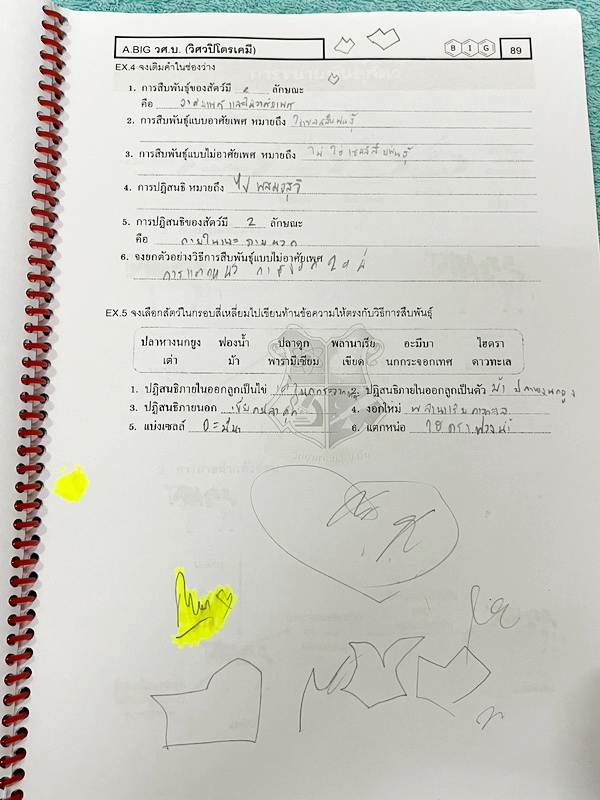 A.BIG วศ.บ. (วิศวปิโตรเคมี) B I G 89
EX.4 จงเติมคำในช่องว่าง
1. การสืบพันธุ์ของสัตว์มี 2 ลักษณะ
คือ อาศัยเพศ และไม่อาศัยเพศ
2. การสืบพันธุ์แบบอาศัยเพศ หมายถึง ใช้เซลล์สืบพันธุ์
3. การสืบพันธุ์แบบไม่อาศัยเพศ หมายถึง ไม่ใช้เซลล์สืบพันธุ์
4. การปฏิสนธิ หมายถึง ไข่ ผสมอสุจิ
5. การปฏิสนธิของสัตว์มี 2 ลักษณะ
คือ ภายในและภายนอก
6. จงยกตัวอย่างวิธีการสืบพันธุ์แบบไม่อาศัยเพศ
การแตกหน่อ
EX.5 จงเลือกสัตว์ในกรอบสี่เหลี่ยมไปเขียนท้ายข้อความให้ตรงกับวิธีการสืบพันธุ์
ปลาหางนกยูง ฟองน้ำ ปลาดุก พลานาเรีย อะมีบา ไฮดรา
เต่า ม้า พารามีเซียม เขียด นกกระจอกเทศ ดาวทะเล
1. ปฏิสนธิภายในออกลูกเป็นไข่ 2. ปฏิสนธิภายในออกลูกเป็นตัว ม้า ปลาหางนกยูง
3. ปฏิสนธิภายนอก เขียด ปลาดุก 4. งอกใหม่ พลานาเรีย ดาวทะเล
5. แบ่งเซลล์ 6. แตกหน่อ ไฮดรา ฟองน้ำ